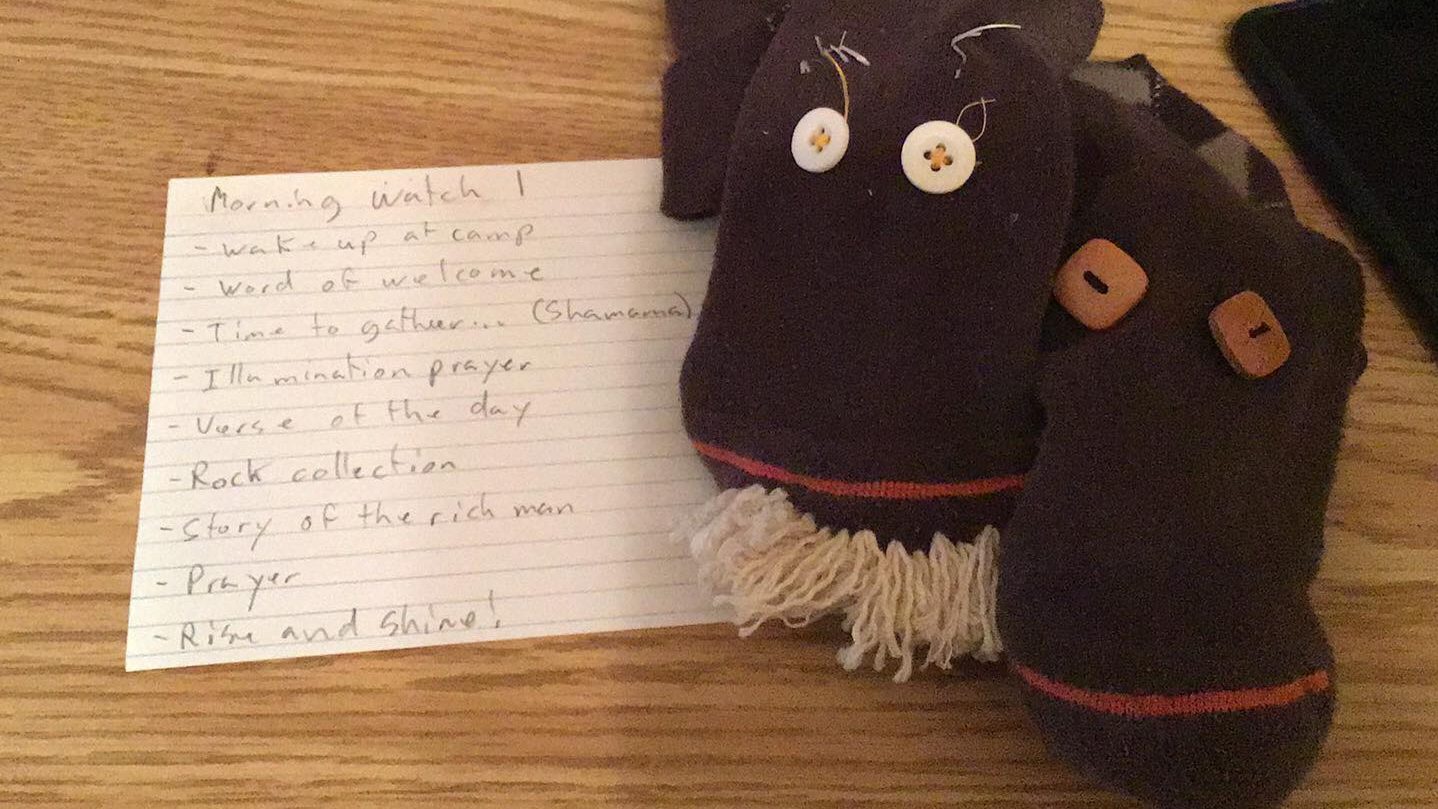 Morning Watch 1
- Wake up at camp
- Word of welcome
- Time to gather... (Shamama)
- Illumination prayer
- Verse of the day
- Rock collection
- Story of the rich man
- Prayer
- Rise and shine!